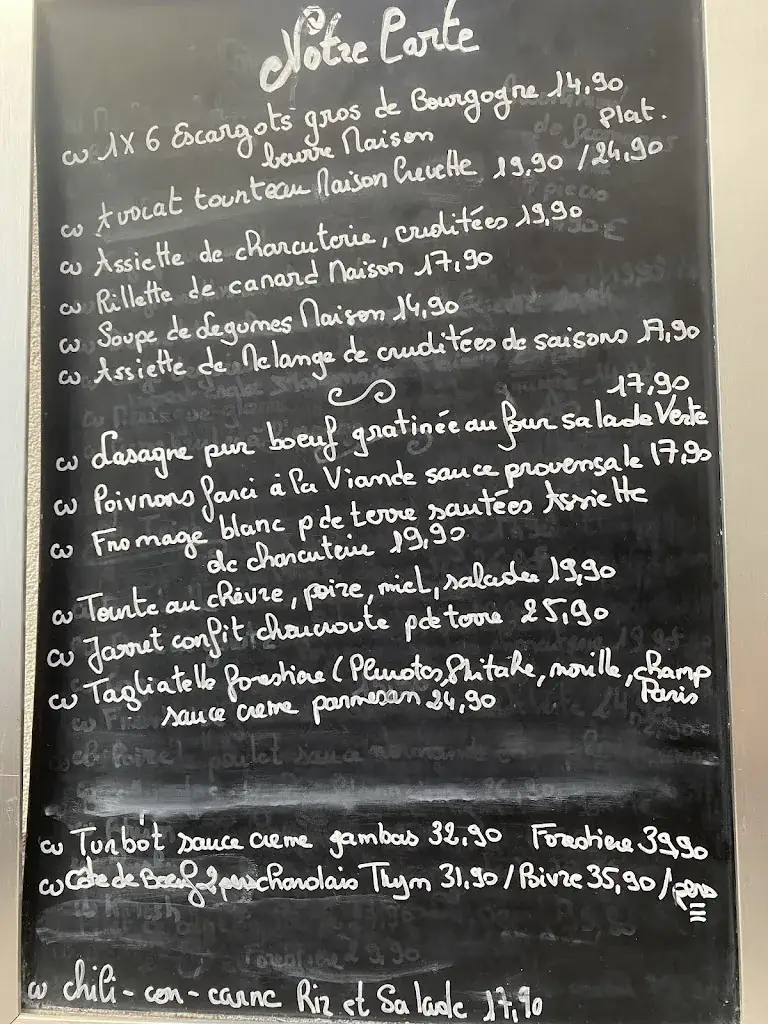 Notre Carte
1X6 Escargots gros de Bourgogne 14,90
beurre Maison plat.
Avocat tourteau Maison Crevette 19,90 / 24,90
Assiette de charcuterie, cruditées 19,90
Rillette de canard Maison 17,90
Soupe de Legumes Maison 14,90
Assiette de Melange de cruditées de saisons 17,90
17,90
Lasagne pur boeuf gratinée au four salade Verte
Poivrons farci à la Viande sauce provençale 17,90
Fromage blanc p de terre sautées Assiette
de charcuterie 19,90
Tourte au chèvre, poire, miel, salade 19,90
Jarret confit choucroute p de terre 25,90
Tagliatelle forestiere (Pleurotes, Shitake, morille, champ
Paris
sauce creme parmesan 24,90
Turbot sauce creme gambas 32,90 Forestiere 39,90
Côte de Boeuf 2 pers charolais Thym 31,90 / Poivre 35,90 / pers
chili-con-carne Riz et Salade 17,90